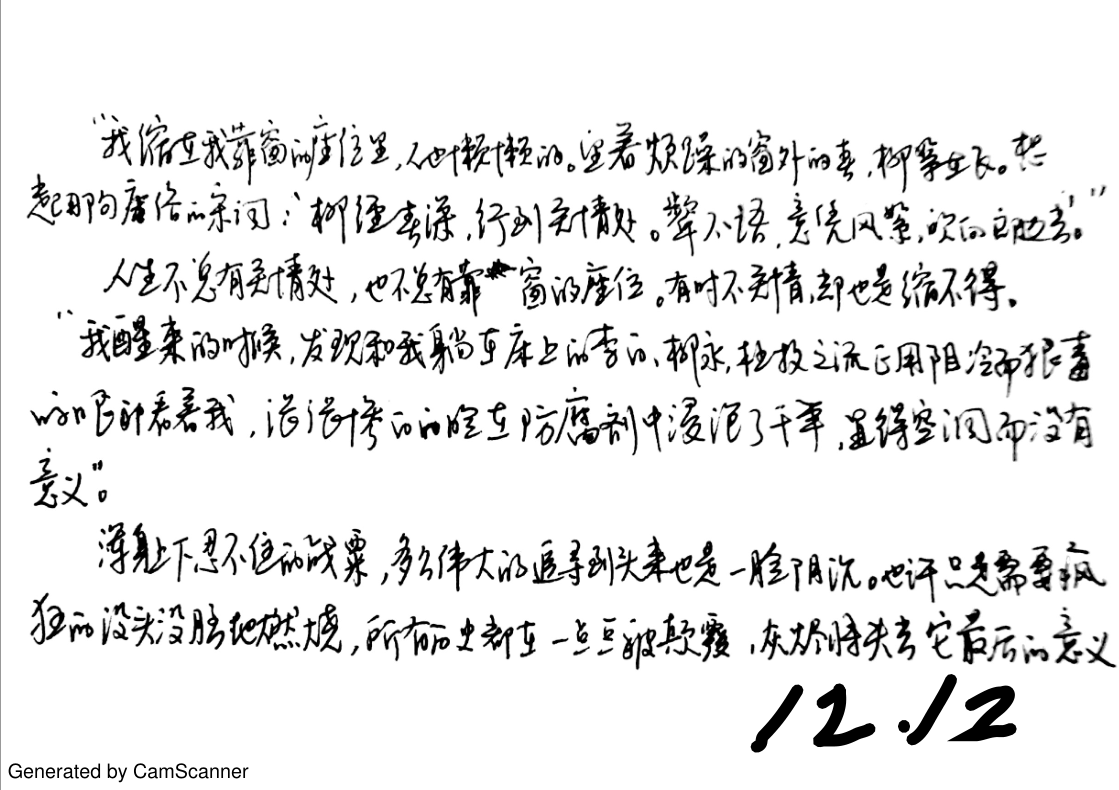 “我缩在我靠窗的座位里,人也懒懒的。望着烦躁的窗外的春,柳笔生长。想
起那句庸俗的宋词:‘柳径春深,行到关情处。颦不语,意凭风絮,吹向郎边去。’”
人生不总有关情处,也不总有靠窗的座位。有时不关情,却也是缩不得。
“我醒来的时候,发现和我躺在床上的李白、柳永,杜牧之流正用阴冷而狠毒
的眼神看着我,的脸在防腐剂中浸泡了千年,显得空洞而没有
意义”。
浑身上下忍不住的战栗,多么伟大的追寻到头来也是一脸阴沉。也许只是需要疯
狂的没头没脑地燃烧,所有历史都在一点点被颠覆,灰烬将失去它最后的意义
12.12
Generated by CamScanner